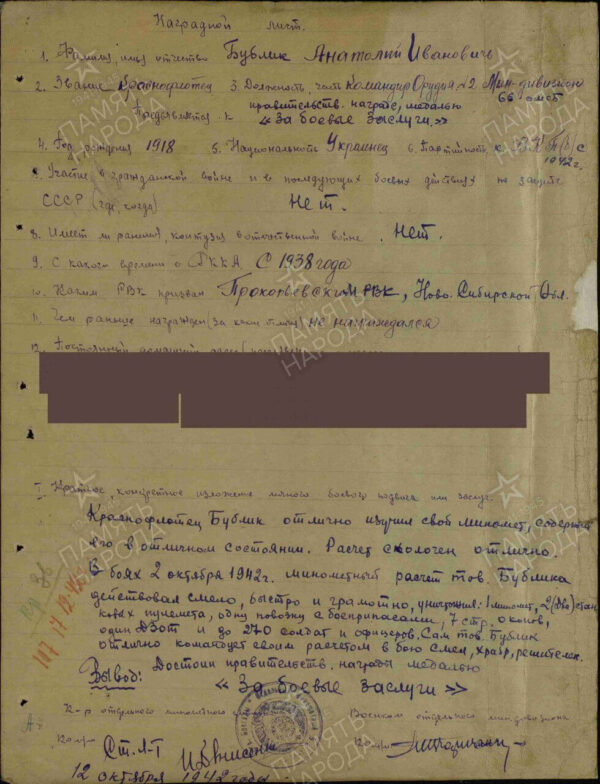 Наградной лист.
1. Фамилия, имя отчество Бублик Анатолий Иванович
2. Звание Краснофлотец 3. Должность, часть Командир Орудия №2 Мин-дивизион
66 омсб
правительств. награде, медалью
Предъявляется к «За боевые заслуги.»
4. Год рождения 1918 5. Национальность Украинец 6. Партийность к ВКП(б) с
1942г.
7. Участие в гражданской войне и в последующих боевых действиях по защите
СССР (где, когда) Нет.
8. Имеет ли ранения, контузия в отечественной войне. Нет.
9. С какого времени в РККА С 1938 года
10. Каким РВК призван Прокопьевским РВК, Ново-Сибирской Обл.
11. Чем раньше награжден (за какие отлич.) не награждался
12. Постоянный домашний адрес
I Краткое, конкретное изложение личного боевого подвига или заслуг.
Краснофлотец Бублик отлично изучил свой миномет, содержит
его в отличном состоянии. Расчет сколочен отлично.
В боях 2 октября 1942г. минометный расчет тов. Бублика
действовал смело, быстро и грамотно, уничтожил: 1 миномет, 2 (два) стан-
ковых пулемета, одну повозку с боеприпасами, 7 стр. окопов,
один ДЗОТ и до 270 солдат и офицеров. Сам тов. Бублик
отлично командует своим расчетом в бою смел, храбр, решителен.
Вывод: Достоин правительств. награды медалью
«За боевые заслуги»
К-р отдельного минометного Военком отдельного мин. дивизиона
Ст. л-т
12 октября 1942 года
107 17.12.42
ПАМЯТЬ НАРОДА